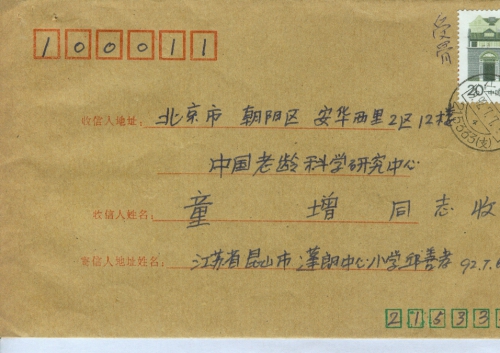 100011
收信人地址: 北京市 朝阳区 安华西里2区12楼
中国老龄科学研究中心
收信人姓名: 童 增 同志收
寄信人地址姓名: 江苏省昆山市 蓬朗中心小学邱善孝 92.7.6
21533
20